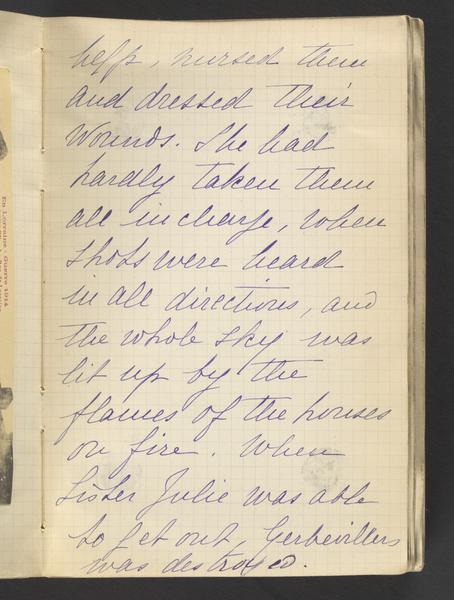 help, nursed them
and dressed their
wounds. She had
hardly taken them
all in charge, when
shots were heard
in all directions, and
the whole sky was
lit up by the
flames of the houses
on fire. When
Sister Julie was able
to get out, Gerbevillers
was destroyed.
En Lorraine : Guerre 1914